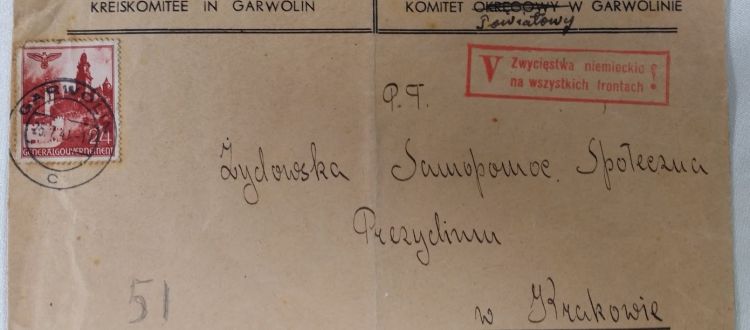 KREISKOMITEE IN GARWOLIN
KOMITET OKRĘGOWY W GARWOLINIE
Powiatowy
V Zwycięstwa niemieckie
na wszystkich frontach!
GARWOLIN
24
GENERALGOUVERNEMENT
C
P.T.
Żydowska Samopomoc Społeczna
Prezydium
w Krakowie
51